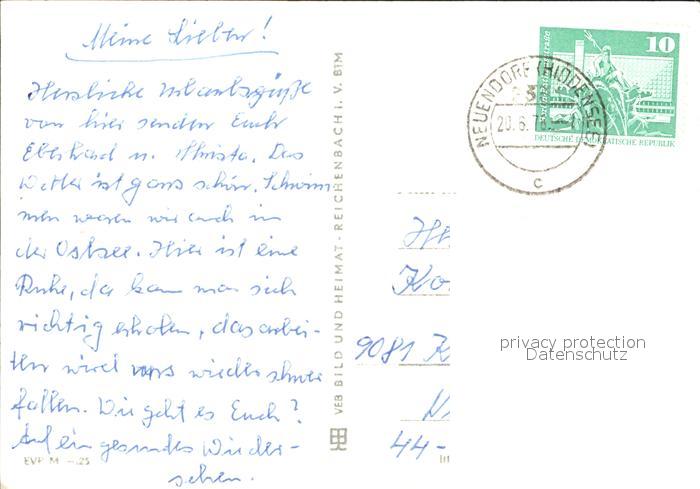 Meine Lieben!
Herzliche Urlaubsgrüße
von hier senden Euch
Eberhard u. Christa. Das
Wetter ist ganz schön. Schwim
men waren wir auch in
der Ostsee. Hier ist eine
Ruhe, da kann man sich
richtig erholen, das arbei-
ten wird uns wieder schwer
fallen. Wie geht es Euch?
Auf ein gesundes Wieder-
sehen.
EVP M -.25
VEB BILD UND HEIMAT · REICHENBACH I. V. BIM
10
DEUTSCHE DEMOKRATISCHE REPUBLIK
NEUENDORF (HIDDENSEE)
20.6.7
c
Ko
9081 K
44-
privacy protection
Datenschutz